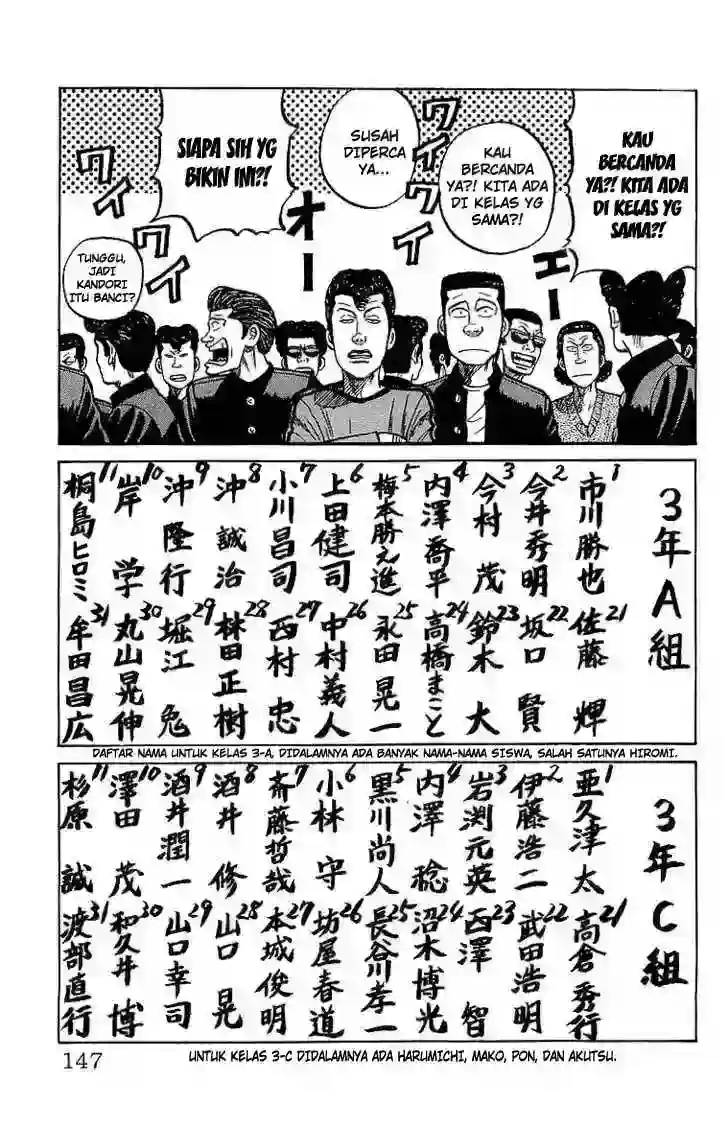 KAU
BERCANDA
YA?! KITA ADA
DI KELAS YG
SAMA?!
エー
KAU
BERCANDA
YA?! KITA ADA
DI KELAS YG
SAMA?!
ワイワイ
SUSAH
DIPERCA
YA...
オー
SIAPA SIH YG
BIKIN INI?!
ワイワイ
TUNGGU,
JADI
KANDORI
ITU BANCI?
3年A組
1 市川勝也
2 今井秀明
3 今村茂
4 内澤喬平
5 梅本勝之進
6 上田健司
7 小川昌司
8 沖誠治
9 沖隆行
10 岸学
11 桐島ヒロミ
21 佐藤輝
22 坂口賢
23 鈴木大
24 高橋まこと
25 永田晃一
26 中村義人
27 西村忠
28 林田正樹
29 堀江勉
30 丸山晃伸
31 牟田昌広
DAFTAR NAMA UNTUK KELAS 3-A, DIDALAMNYA ADA BANYAK NAMA-NAMA SISWA, SALAH SATUNYA HIROMI.
3年C組
1 亜久津太
2 伊藤浩二
3 岩渕元英
4 内澤稔
5 黒川尚人
6 小林守
7 斎藤哲哉
8 酒井修
9 酒井潤一
10 澤田茂
11 杉原誠
21 高倉秀行
22 武田浩明
23 西澤智
24 沼木博光
25 長谷川孝一
26 坊屋春道
27 本城俊明
28 山口晃
29 山口幸司
30 和久井博
31 渡部直行
UNTUK KELAS 3-C DIDALAMNYA ADA HARUMICHI, MAKO, PON, DAN AKUTSU.
147